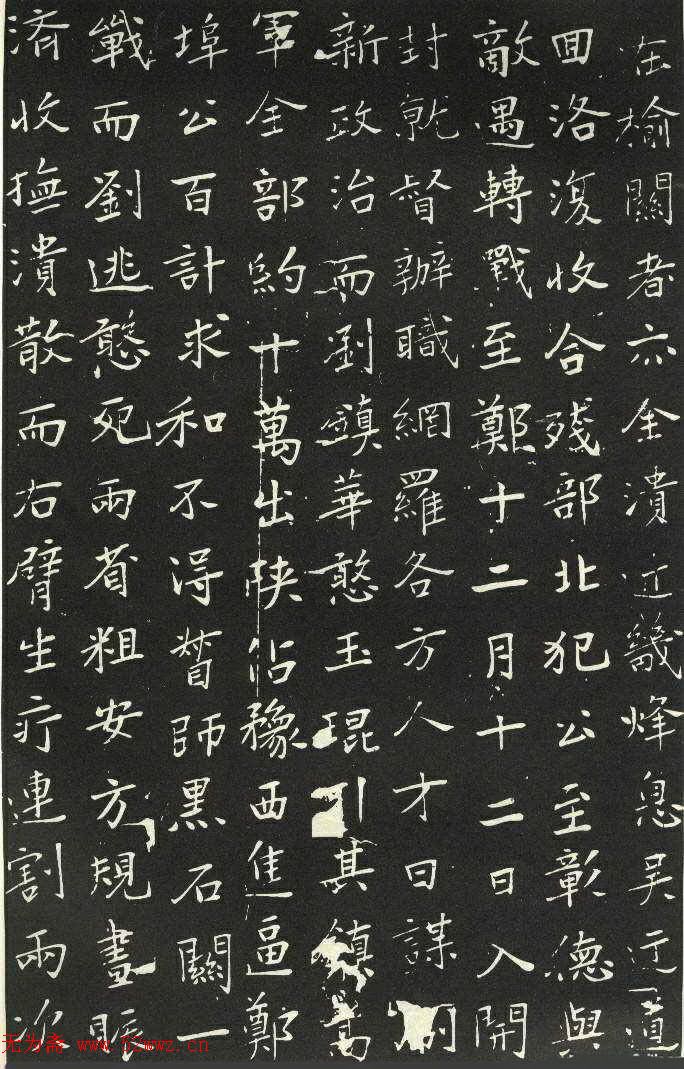 在榆關者亦全潰近畿烽息吳迂道
回洛復收合殘部北犯公至彰德與
敵遇轉戰至鄭十二月十二日入開
封就督辦職網羅各方人才日謀刷
新政治而劉鎮華憨玉琨引其鎮嵩
軍全部約十萬出陝佔豫西進逼鄭
埠公百計求和不得誓師黑石關一
戰而劉逃憨死兩省粗安方規畫賑
濟收撫潰散而右臂生疔連割兩次
无为斋 www.52wwz.cn